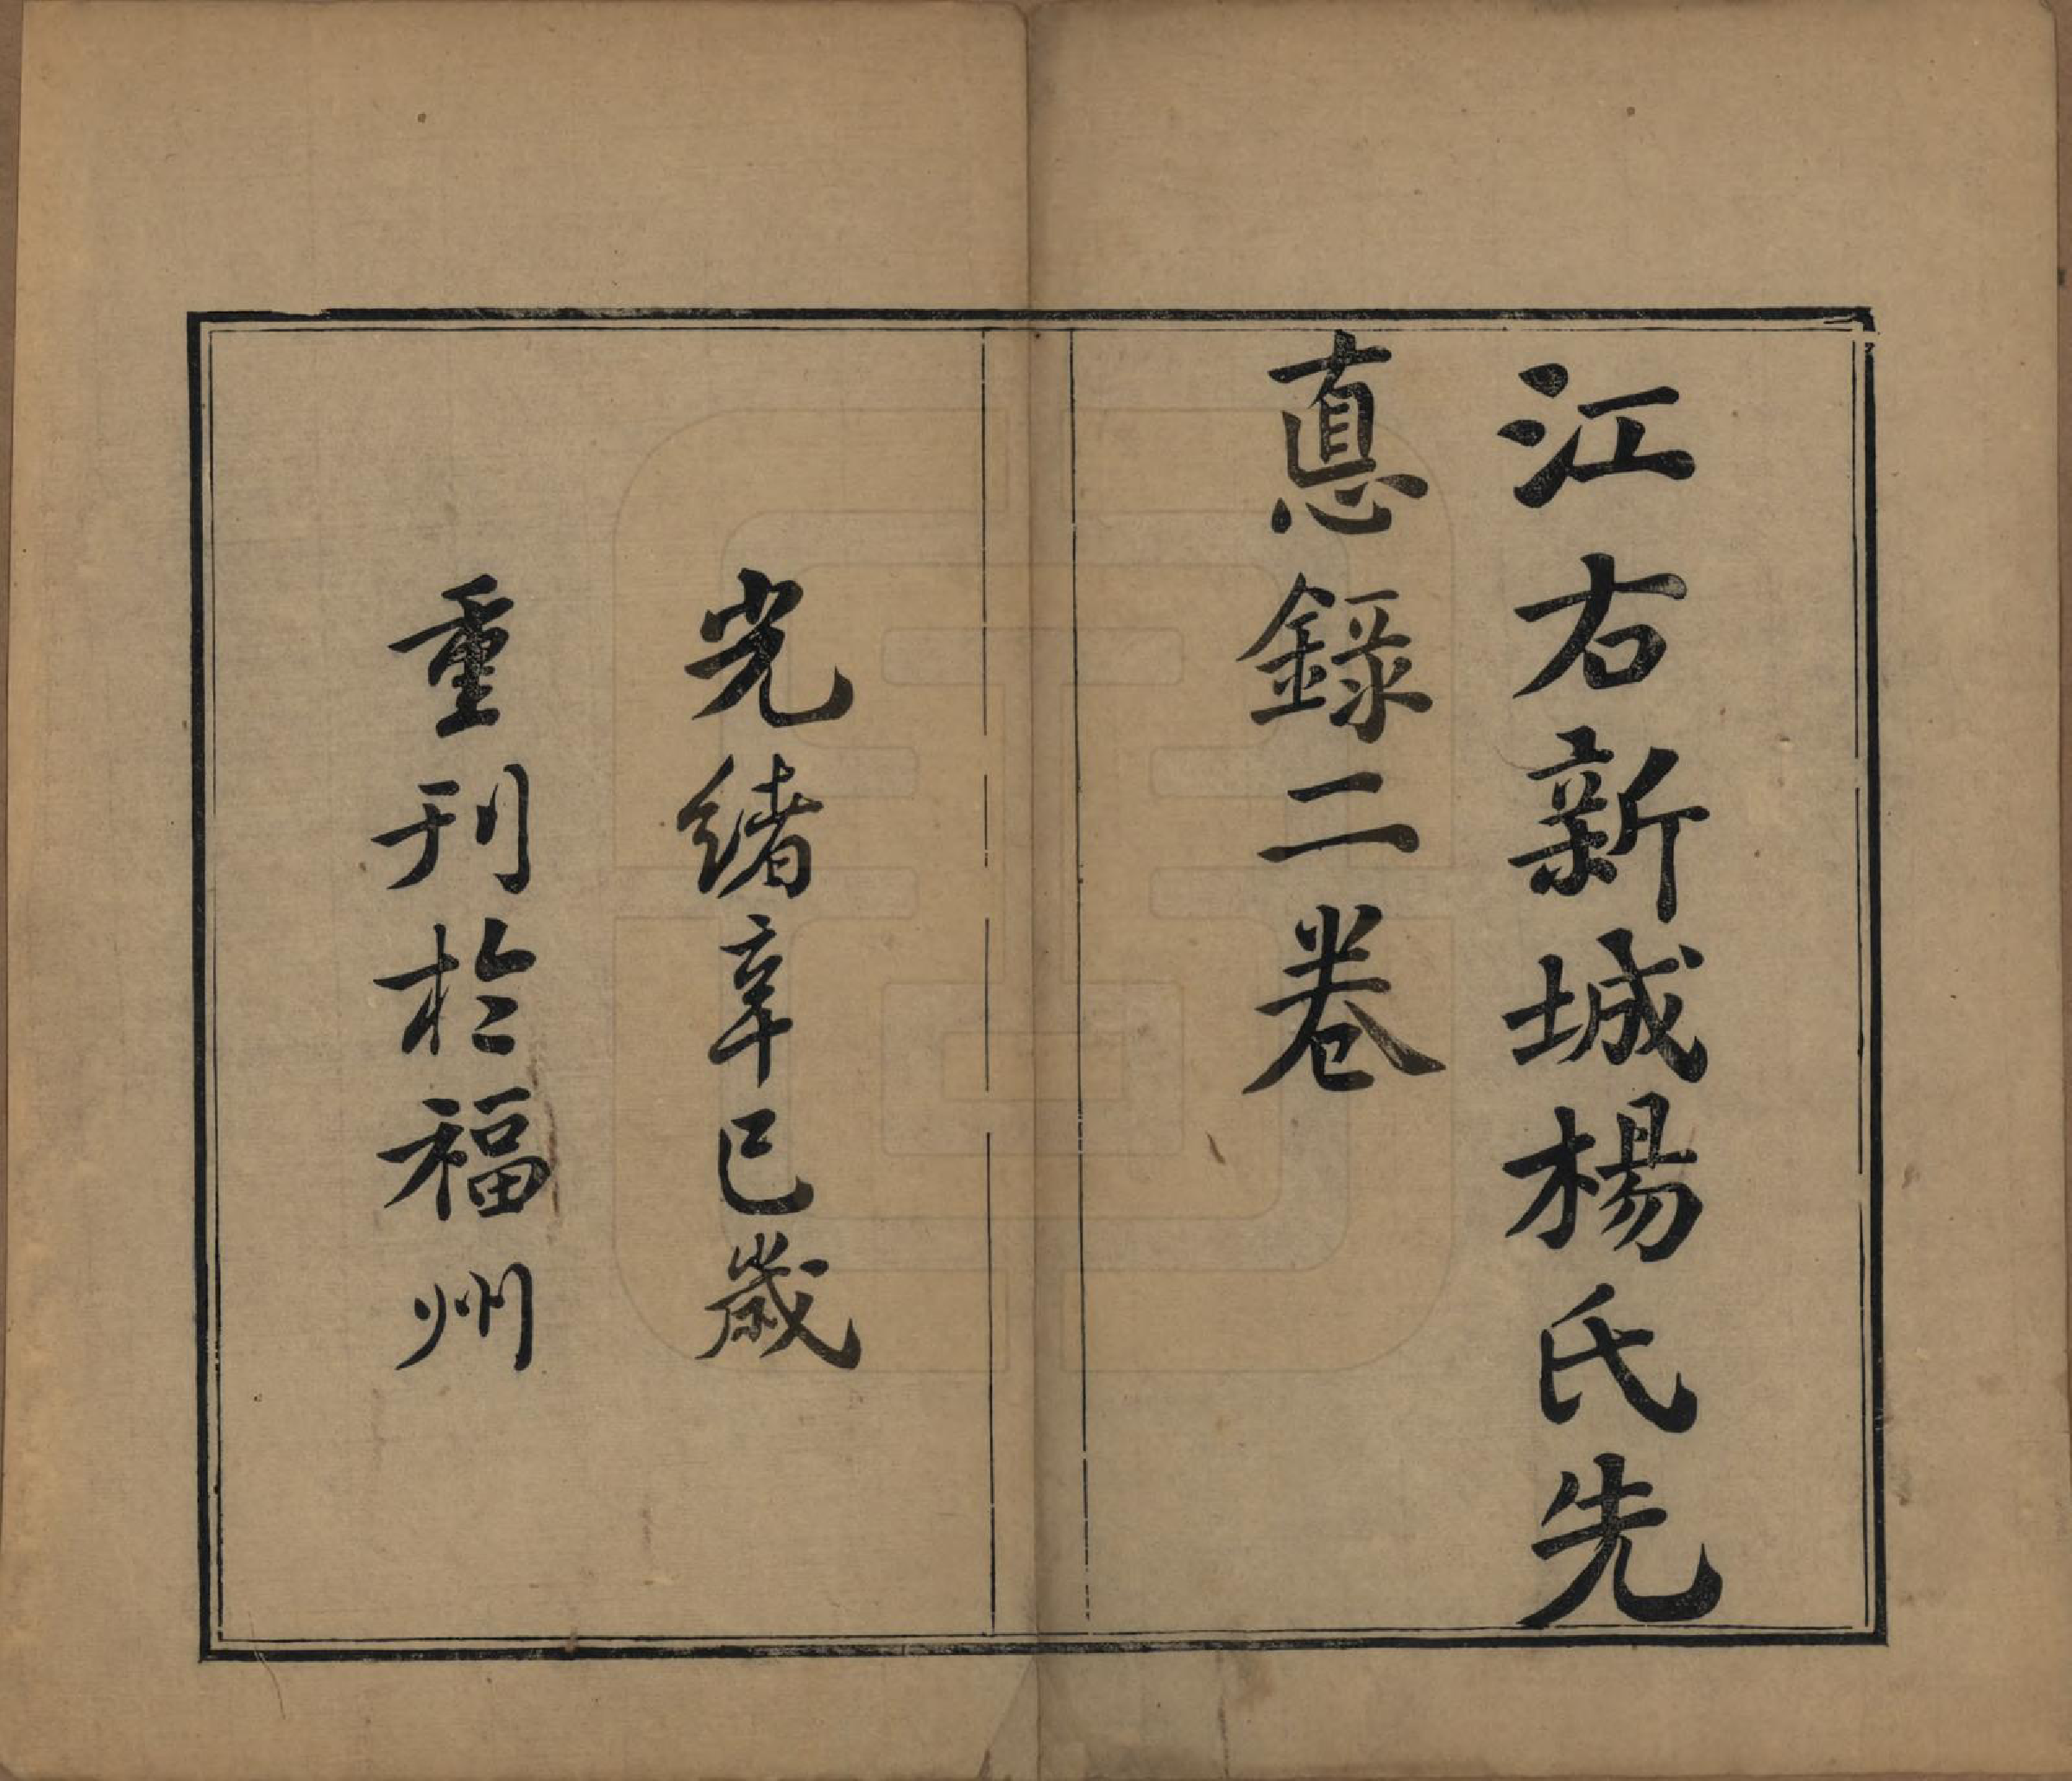 江右新城楊氏先
悳錄二卷
光緒辛巳歲
重刊於福州